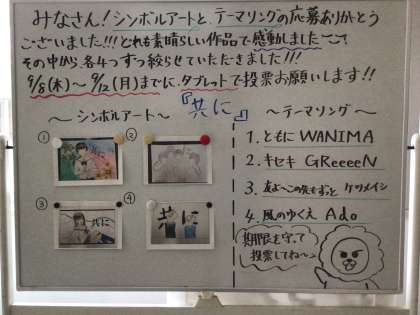 みなさん！シンボルアートと、テーマソングの応募ありがとう
ございました!!! どれも素晴らしい作品で感動しました
その中から、各4つずつ絞らせていただきました!!
9/8(木)～9/12(月)までに、タブレットで投票お願いします!!
『共に』
～シンボルアート～
① ②
共に
③ ④
共に 共に
～テーマソング～
1. ともに WANIMA
2. キセキ GReeeeN
3. 友よ～この先もずっと ケツメイシ
4. 風のゆくえ Ado
期限を守って
投票してね～